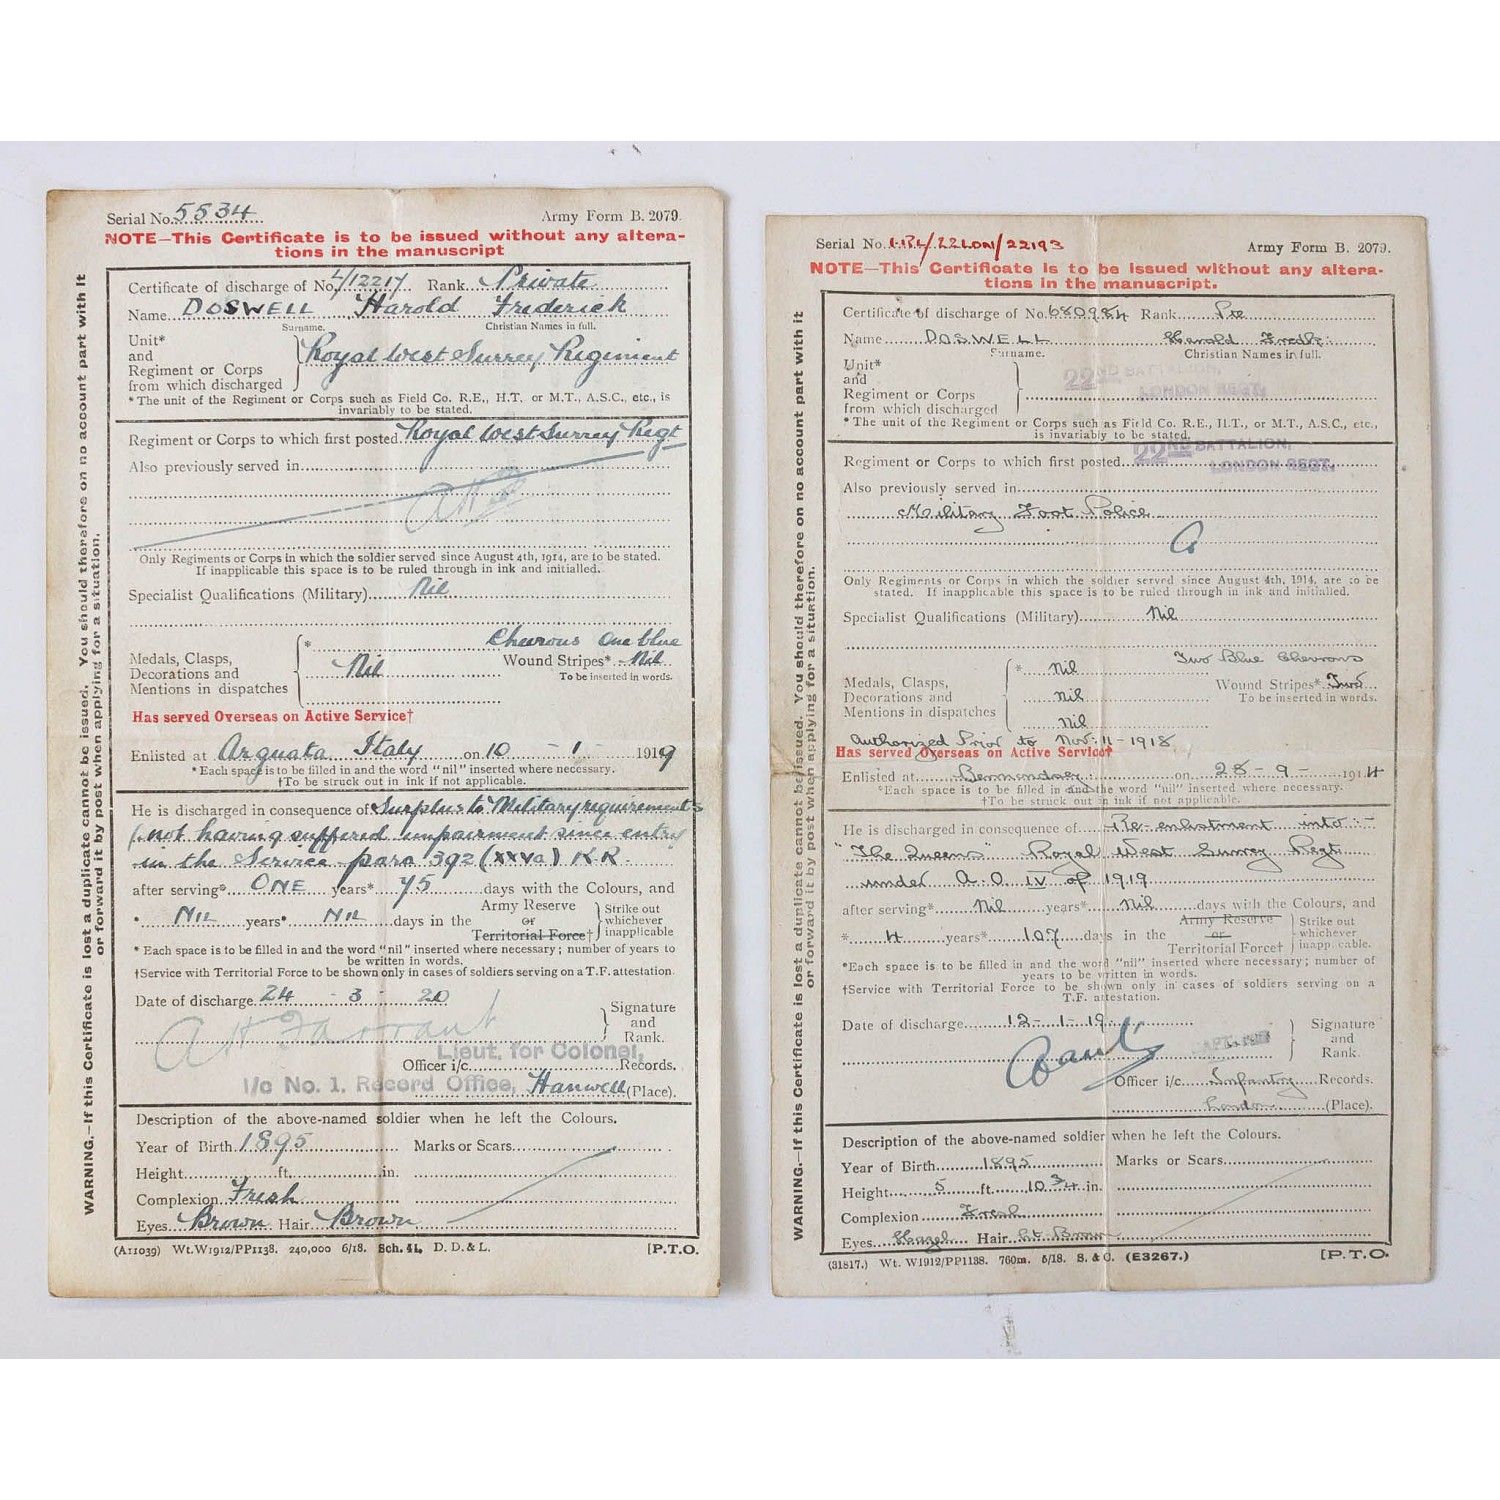 Serial No. 5534 Army Form B. 2079.
NOTE—This Certificate is to be issued without any altera-
tions in the manuscript
WARNING.—If this Certificate is lost a duplicate cannot be issued. You should therefore on no account part with it
or forward it by post when applying for a situation.
Certificate of discharge of No. L/12217 Rank Private
Name DOSWELL Harold Frederick
Surname. Christian Names in full.
Unit*
and
Regiment or Corps
from which discharged
Royal West Surrey Regiment
* The unit of the Regiment or Corps such as Field Co. R.E., H.T. or M.T., A.S.C., etc., is
invariably to be stated.
Regiment or Corps to which first posted Royal West Surrey Regt
Also previously served in
Only Regiments or Corps in which the soldier served since August 4th, 1914, are to be stated.
If inapplicable this space is to be ruled through in ink and initialled.
Specialist Qualifications (Military) Nil
Chevrons One blue
Medals, Clasps,
Decorations and
Mentions in dispatches
* Nil
Wound Stripes* Nil
To be inserted in words.
Has served Overseas on Active Service†
Enlisted at Arquata Italy on 10 - 1 - 1919
*Each space is to be filled in and the word "nil" inserted where necessary.
†To be struck out in ink if not applicable.
He is discharged in consequence of Surplus to Military requirements
(not having suffered impairment since entry
in the Service para 392 (XXVa) KR.
after serving* ONE years* 75 days with the Colours, and
* Nil years* Nil days in the
Army Reserve
or
Territorial Force†
Strike out
whichever
inapplicable
* Each space is to be filled in and the word "nil" inserted where necessary; number of years to
be written in words.
†Service with Territorial Force to be shown only in cases of soldiers serving on a T.F. attestation.
Date of discharge 24 - 3 - 20
A H Farrant
Signature
and
Rank.
Lieut. for Colonel,
Officer i/c Records.
I/c No. 1. Record Office, Hanwell (Place).
Description of the above-named soldier when he left the Colours.
Year of Birth 1895 Marks or Scars
Height ft. in.
Complexion Fresh
Eyes Brown Hair Brown
(A11039) Wt.W1912/PP1138. 240,000 6/18. Sch. 41. D. D. & L. [P.T.O.
Serial No. 22LON/22193 Army Form B. 2079.
NOTE—This Certificate is to be issued without any altera-
tions in the manuscript.
WARNING.—If this Certificate is lost a duplicate cannot be issued. You should therefore on no account part with it
or forward it by post when applying for a situation.
Certificate of discharge of No. 680984 Rank Pte
Name DOSWELL Harold Fredk:
Surname. Christian Names in full.
Unit*
and
Regiment or Corps
from which discharged
22ND BATTALION,
LONDON REGT.
*The unit of the Regiment or Corps such as Field Co. R.E., H.T., or M.T., A.S.C., etc.,
is invariably to be stated.
Regiment or Corps to which first posted 22ND BATTALION,
LONDON REGT.
Also previously served in
Military Foot Police
Only Regiments or Corps in which the soldier served since August 4th, 1914, are to be
stated. If inapplicable this space is to be ruled through in ink and initialled.
Specialist Qualifications (Military) Nil
Medals, Clasps,
Decorations and
Mentions in dispatches
* Nil
Nil
Nil
Two Blue Chevrons
Wound Stripes* Two
To be inserted in words.
Authorized Prior to Nov: 11-1918
Has served Overseas on Active Service†
Enlisted at Bermondsey on 28 - 9 - 1914
*Each space is to be filled in and the word "nil" inserted where necessary.
†To be struck out in ink if not applicable.
He is discharged in consequence of Re-enlistment into:-
"The Queens" Royal West Surrey Regt
under A.O. IV of 1919
after serving* Nil years* Nil days with the Colours, and
* 4 years* 107 days in the
Army Reserve
or
Territorial Force†
Strike out
whichever
inapplicable.
*Each space is to be filled in and the word "nil" inserted where necessary; number of
years to be written in words.
†Service with Territorial Force to be shown only in cases of soldiers serving on a
T.F. attestation.
Date of discharge 12-1-19
Signature
and
Rank.
Officer i/c Infantry Records.
London (Place).
Description of the above-named soldier when he left the Colours.
Year of Birth 1895 Marks or Scars
Height 5 ft. 10 3/4 in.
Complexion Fresh
Eyes Hazel Hair Lt. Brown
(31817.) Wt. W1912/PP1138. 760m. 5/18. S. & C. (E3267.) [P.T.O.